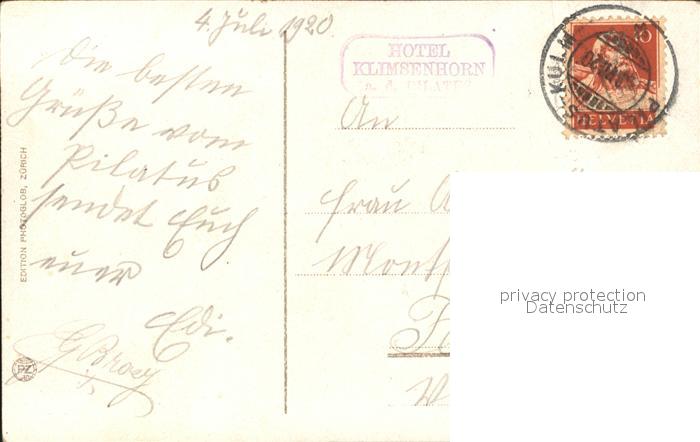 4. Juli 1920.
Die besten
Grüße vom
Pilatus
sendet Euch
euer
Edi.
EDITION PHOTOGLOB, ZÜRICH
PZ
HOTEL
KLIMSENHORN
a. d. PILATUS
PILATUS-KULM
10
HELVETIA
An
Frau
privacy protection
Datenschutz